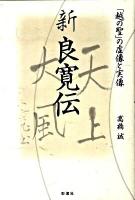 「越の聖」の虚像と実像
新良寛伝
天上大風
高橋誠
彩流社